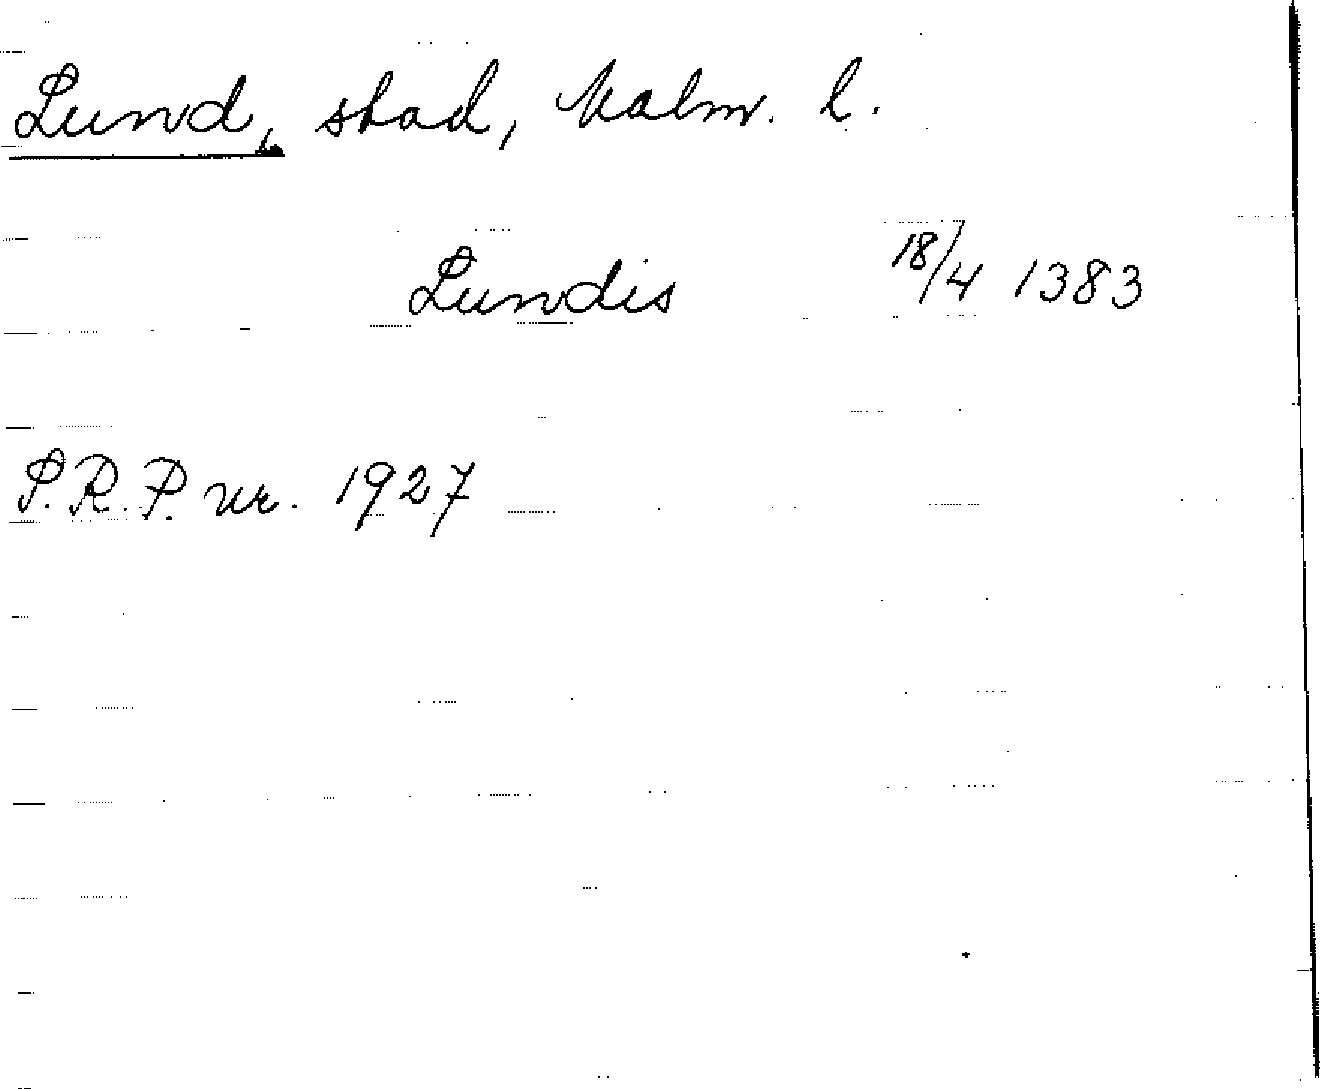 Lund, stad, Malm. l.
Lundis 18/4 1383
S.R.P. nr. 1927